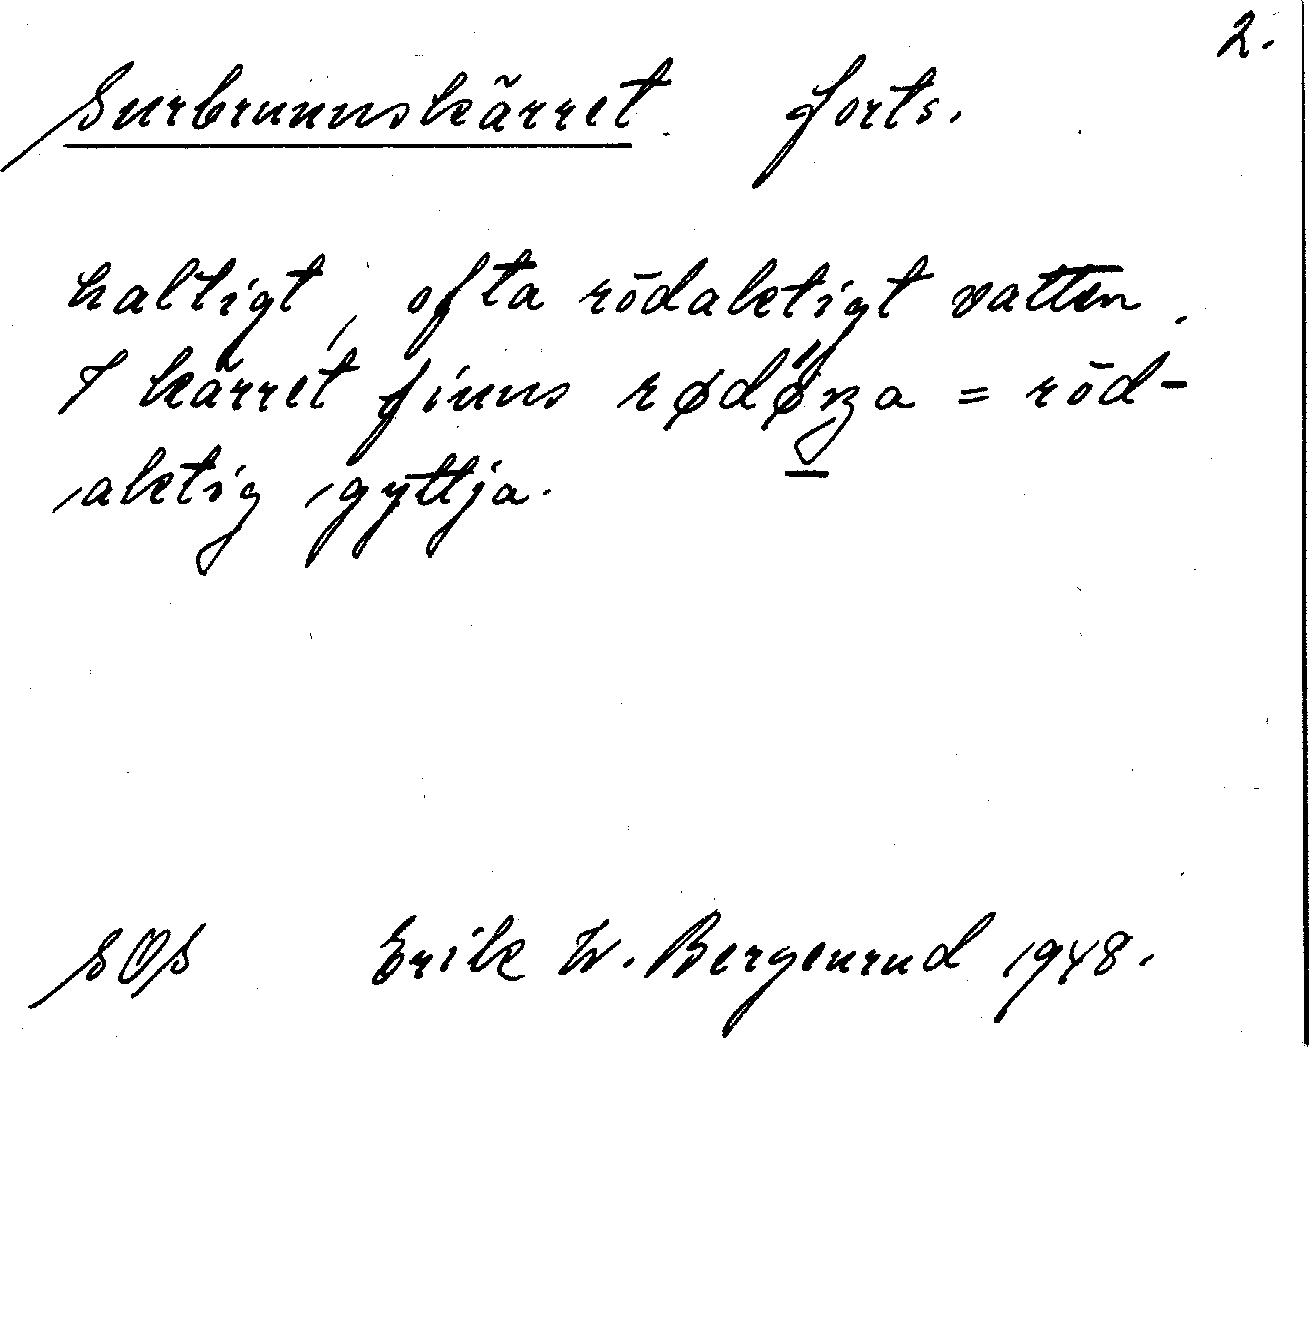 2.
Surbrunnskärret forts.
haltigt, ofta rödaktigt vatten.
I kärret finns = röd-
aktig gyttja.
SOS Erik W. Bergenrud 1948.